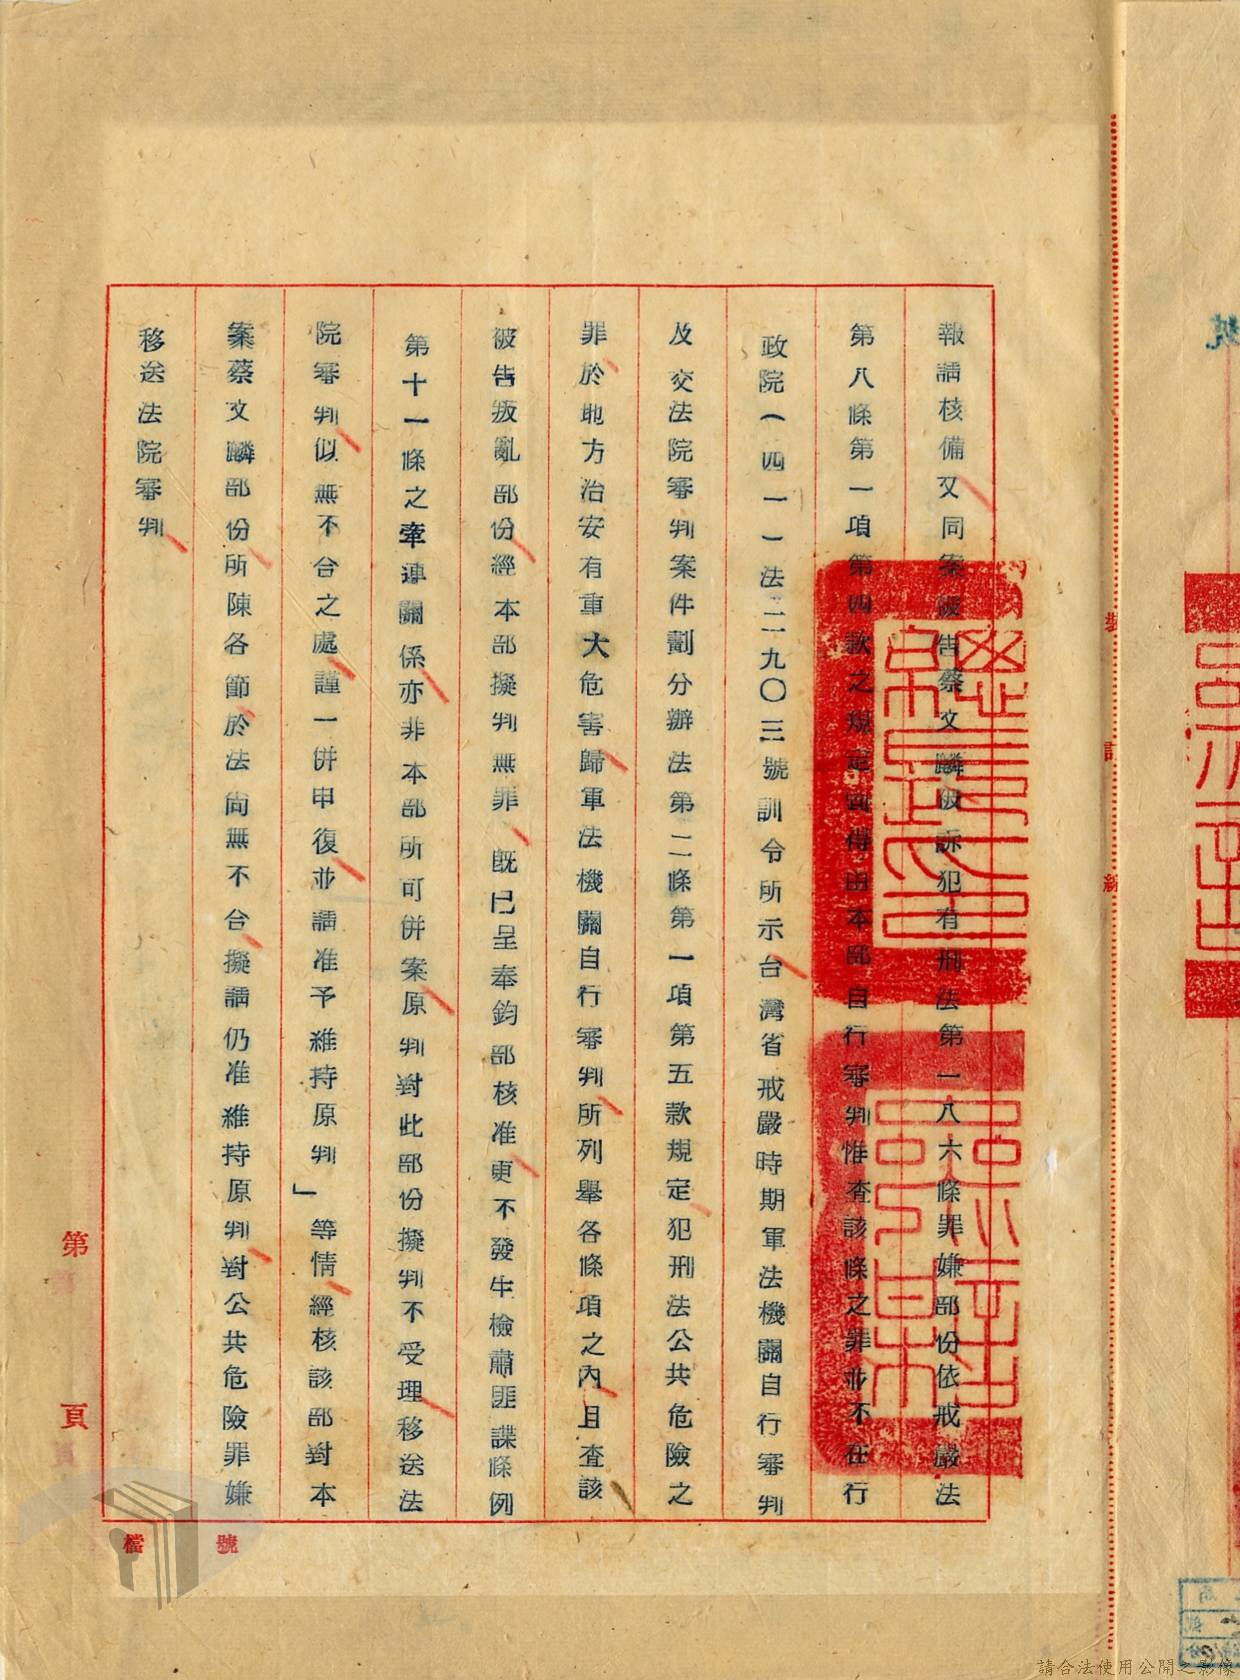 報請核備又同案被告蔡文麟被訴犯有刑法第一八六條罪嫌部份依戒嚴法
第八條第一項第四款之規定固得由本部自行審判惟查該條之罪並不在行
政院(四一)法二九〇三號訓令所示台灣省戒嚴時期軍法機關自行審判
及交法院審判案件劃分辦法第二條第一項第五款規定犯刑法公共危險之
罪於地方治安有重大危害歸軍法機關自行審判所列舉各條項之內且查該
被告叛亂部份經本部擬判無罪既已呈奉鈞部核准更不發生檢肅匪諜條例
第十一條之牽連關係亦非本部所可併案原判對此部份擬判不受理移送法
院審判似無不合之處謹一併申復並請准予維持原判」等情經核該部對本
案蔡文麟部份所陳各節於法尚無不合擬請仍准維持原判對公共危險罪嫌
移送法院審判
裝訂線
第 頁
檔號
請合法使用公開之影像